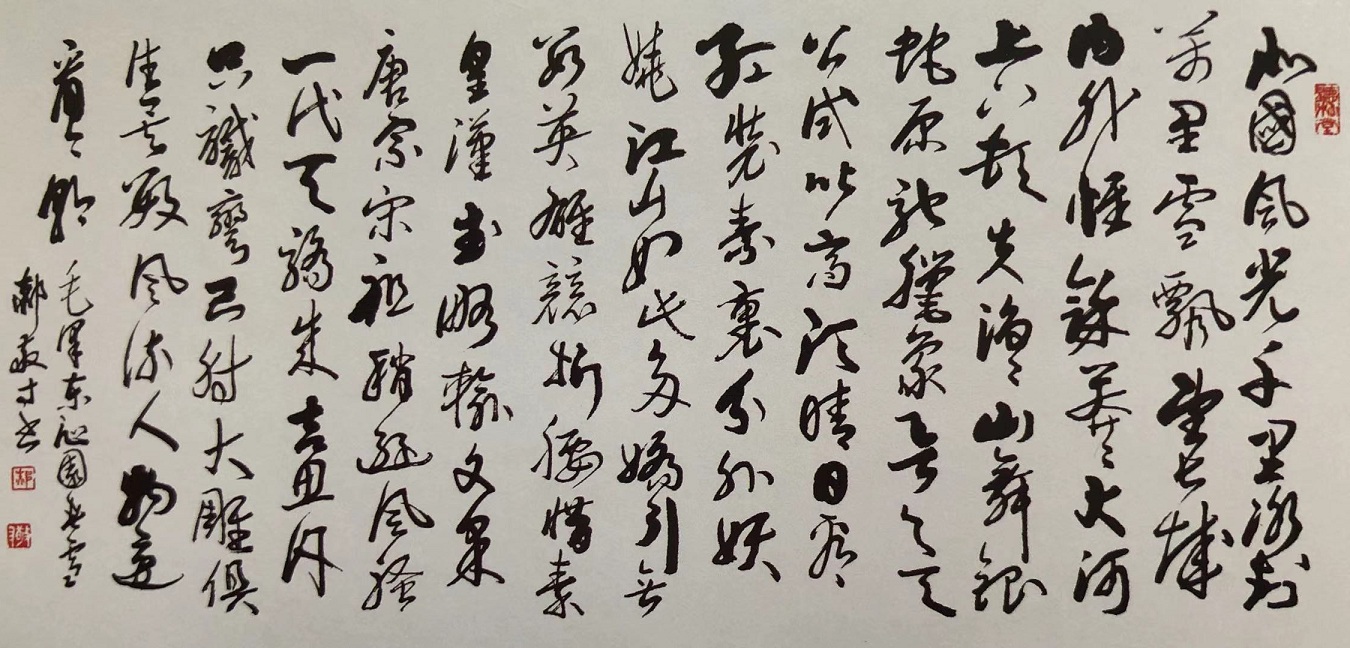 北國風光千里冰封
萬里雪飄望長城
内外惟餘莽〻大河
上下頓失滔〻山舞銀
蛇原馳臘象欲与天
公試比高須晴日看
紅裝素裹分外妖
嬈江山如此多嬌引無
數英雄競折腰惜秦
皇漢武略輸文采
唐宗宋祖稍遜風騷
一代天驕成吉思汗
只識彎弓射大雕俱
往矣數風流人物還
看今朝
毛澤東沁園春雪
郝書
郝